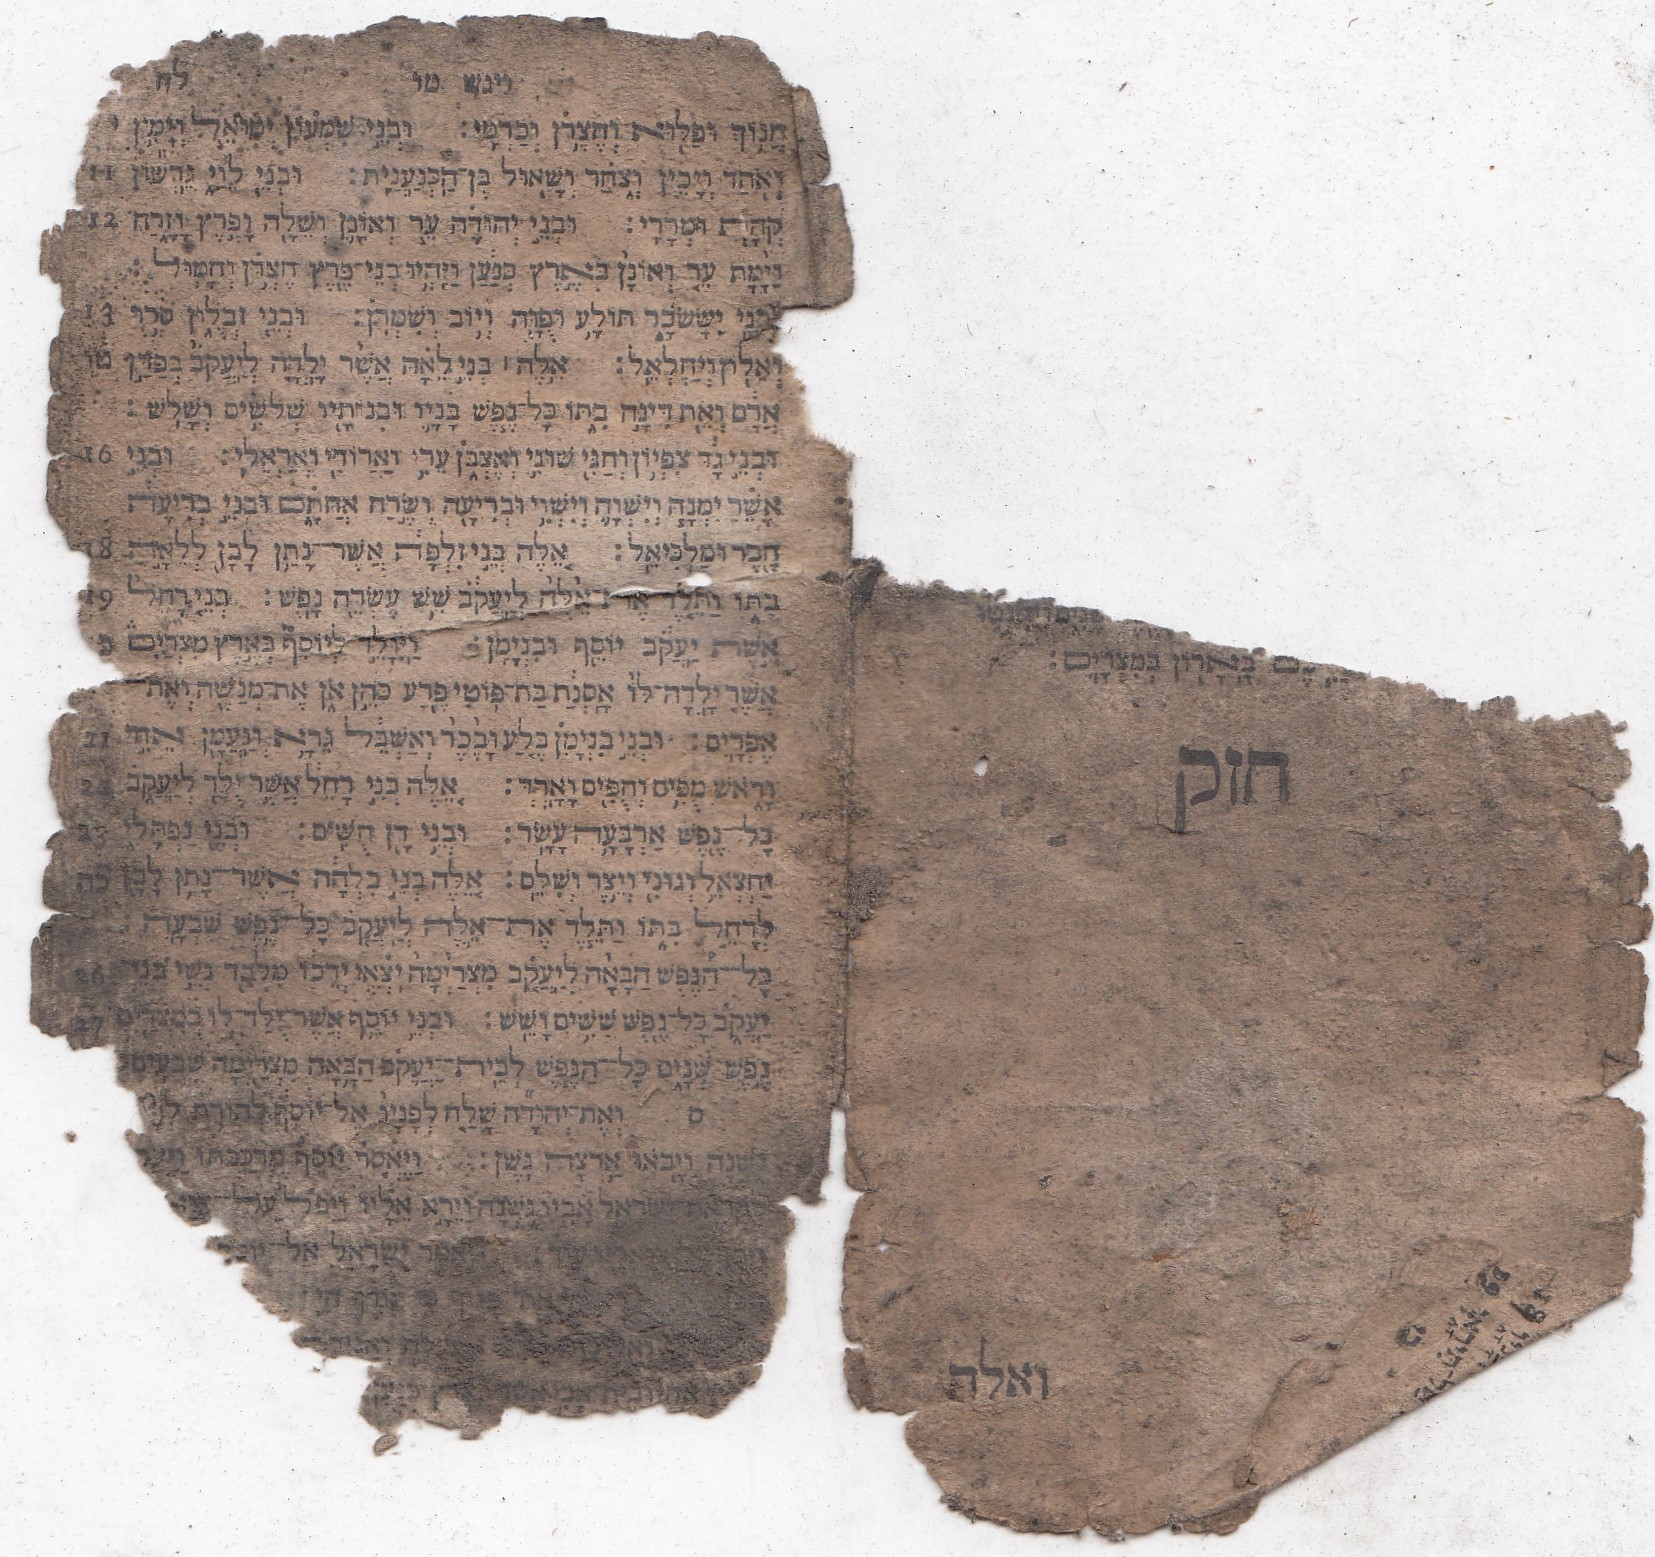 בָּאָרוֹן בְּמִצְרָיִם:
חזק
ואלה
ויגש מו לח
חֲנוֹךְ וּפַלּוּא וְחֶצְרֹן וְכַרְמִי: וּבְנֵי שִׁמְעוֹן יְמוּאֵל וְיָמִין י
וְאֹהַד וְיָכִין וְצֹחַר וְשָׁאוּל בֶּן־הַכְּנַעֲנִית: וּבְנֵי לֵוִי גֵּרְשׁוֹן 11
קְהָת וּמְרָרִי: וּבְנֵי יְהוּדָה עֵר וְאוֹנָן וְשֵׁלָה וָפֶרֶץ וָזָרַח 12
וַיָּמָת עֵר וְאוֹנָן בְּאֶרֶץ כְּנַעַן וַיִּהְיוּ בְנֵי־פֶרֶץ חֶצְרֹן וְחָמוּל:
וּבְנֵי יִשָּׂשכָר תּוֹלָע וּפֻוָּה וְיוֹב וְשִׁמְרֹן: וּבְנֵי זְבֻלוּן סֶרֶד 13
וְאֵלוֹן וְיַחְלְאֵל: אֵלֶּה ׀ בְּנֵי לֵאָה אֲשֶׁר יָלְדָה לְיַעֲקֹב בְּפַדַּן טו
אֲרָם וְאֵת דִּינָה בִתּוֹ כָּל־נֶפֶשׁ בָּנָיו וּבְנוֹתָיו שְׁלֹשִׁים וְשָׁלֹשׁ:
וּבְנֵי גָד צִפְיוֹן וְחַגִּי שׁוּנִי וְאֶצְבֹּן עֵרִי וַאֲרוֹדִי וְאַרְאֵלִי: וּבְנֵי 16
אָשֵׁר יִמְנָה וְיִשְׁוָה וְיִשְׁוִי וּבְרִיעָה וְשֶׂרַח אֲחֹתָם וּבְנֵי בְרִיעָה
חֶבֶר וּמַלְכִּיאֵל: אֵלֶּה בְּנֵי זִלְפָּה אֲשֶׁר־נָתַן לָבָן לְלֵאָה 18
בִתּוֹ וַתֵּלֶד אֶת־אֵלֶּה לְיַעֲקֹב שֵׁשׁ עֶשְׂרֵה נָפֶשׁ: בְּנֵי רָחֵל 19
אֵשֶׁת יַעֲקֹב יוֹסֵף וּבִנְיָמִן: וַיִּוָּלֵד לְיוֹסֵף בְּאֶרֶץ מִצְרַיִם כ
אֲשֶׁר יָלְדָה־לּוֹ אָסְנַת בַּת־פּוֹטִי פֶרַע כֹּהֵן אֹן אֶת־מְנַשֶּׁה וְאֶת־
אֶפְרָיִם: וּבְנֵי בִנְיָמִן בֶּלַע וָבֶכֶר וְאַשְׁבֵּל גֵּרָא וְנַעֲמָן אֵחִי 21
וָרֹאשׁ מֻפִּים וְחֻפִּים וָאָרְדְּ: אֵלֶּה בְּנֵי רָחֵל אֲשֶׁר יֻלַּד לְיַעֲקֹב 22
כָּל־נֶפֶשׁ אַרְבָּעָה עָשָׂר: וּבְנֵי דָן חֻשִׁים: וּבְנֵי נַפְתָּלִי 23
יַחְצְאֵל וְגוּנִי וְיֵצֶר וְשִׁלֵּם: אֵלֶּה בְּנֵי בִלְהָה אֲשֶׁר־נָתַן לָבָן כה
לְרָחֵל בִּתּוֹ וַתֵּלֶד אֶת־אֵלֶּה לְיַעֲקֹב כָּל־נֶפֶשׁ שִׁבְעָה
כָּל־הַנֶּפֶשׁ הַבָּאָה לְיַעֲקֹב מִצְרַיְמָה יֹצְאֵי יְרֵכוֹ מִלְּבַד נְשֵׁי בְנֵי 26
יַעֲקֹב כָּל־נֶפֶשׁ שִׁשִּׁים וָשֵׁשׁ: וּבְנֵי יוֹסֵף אֲשֶׁר־יֻלַּד־לוֹ בְמִצְרַיִם 27
נֶפֶשׁ שְׁנָיִם כָּל־הַנֶּפֶשׁ לְבֵית־יַעֲקֹב הַבָּאָה מִצְרַיְמָה שִׁבְעִים
ס וְאֶת־יְהוּדָה שָׁלַח לְפָנָיו אֶל־יוֹסֵף לְהוֹרֹת לְ
גֹּשְׁנָה וַיָּבֹאוּ אַרְצָה גֹּשֶׁן: וַיֶּאְסֹר יוֹסֵף מֶרְכַּבְתּוֹ וַיַּעַל
לִקְרַאת־יִשְׂרָאֵל אָבִיו גֹּשְׁנָה וַיֵּרָא אֵלָיו וַיִּפֹּל עַל־
עוֹד: וַיֹּאמֶר יִשְׂרָאֵל אֶל־יוֹסֵף
וּבֵית־אָבִי אֲשֶׁר